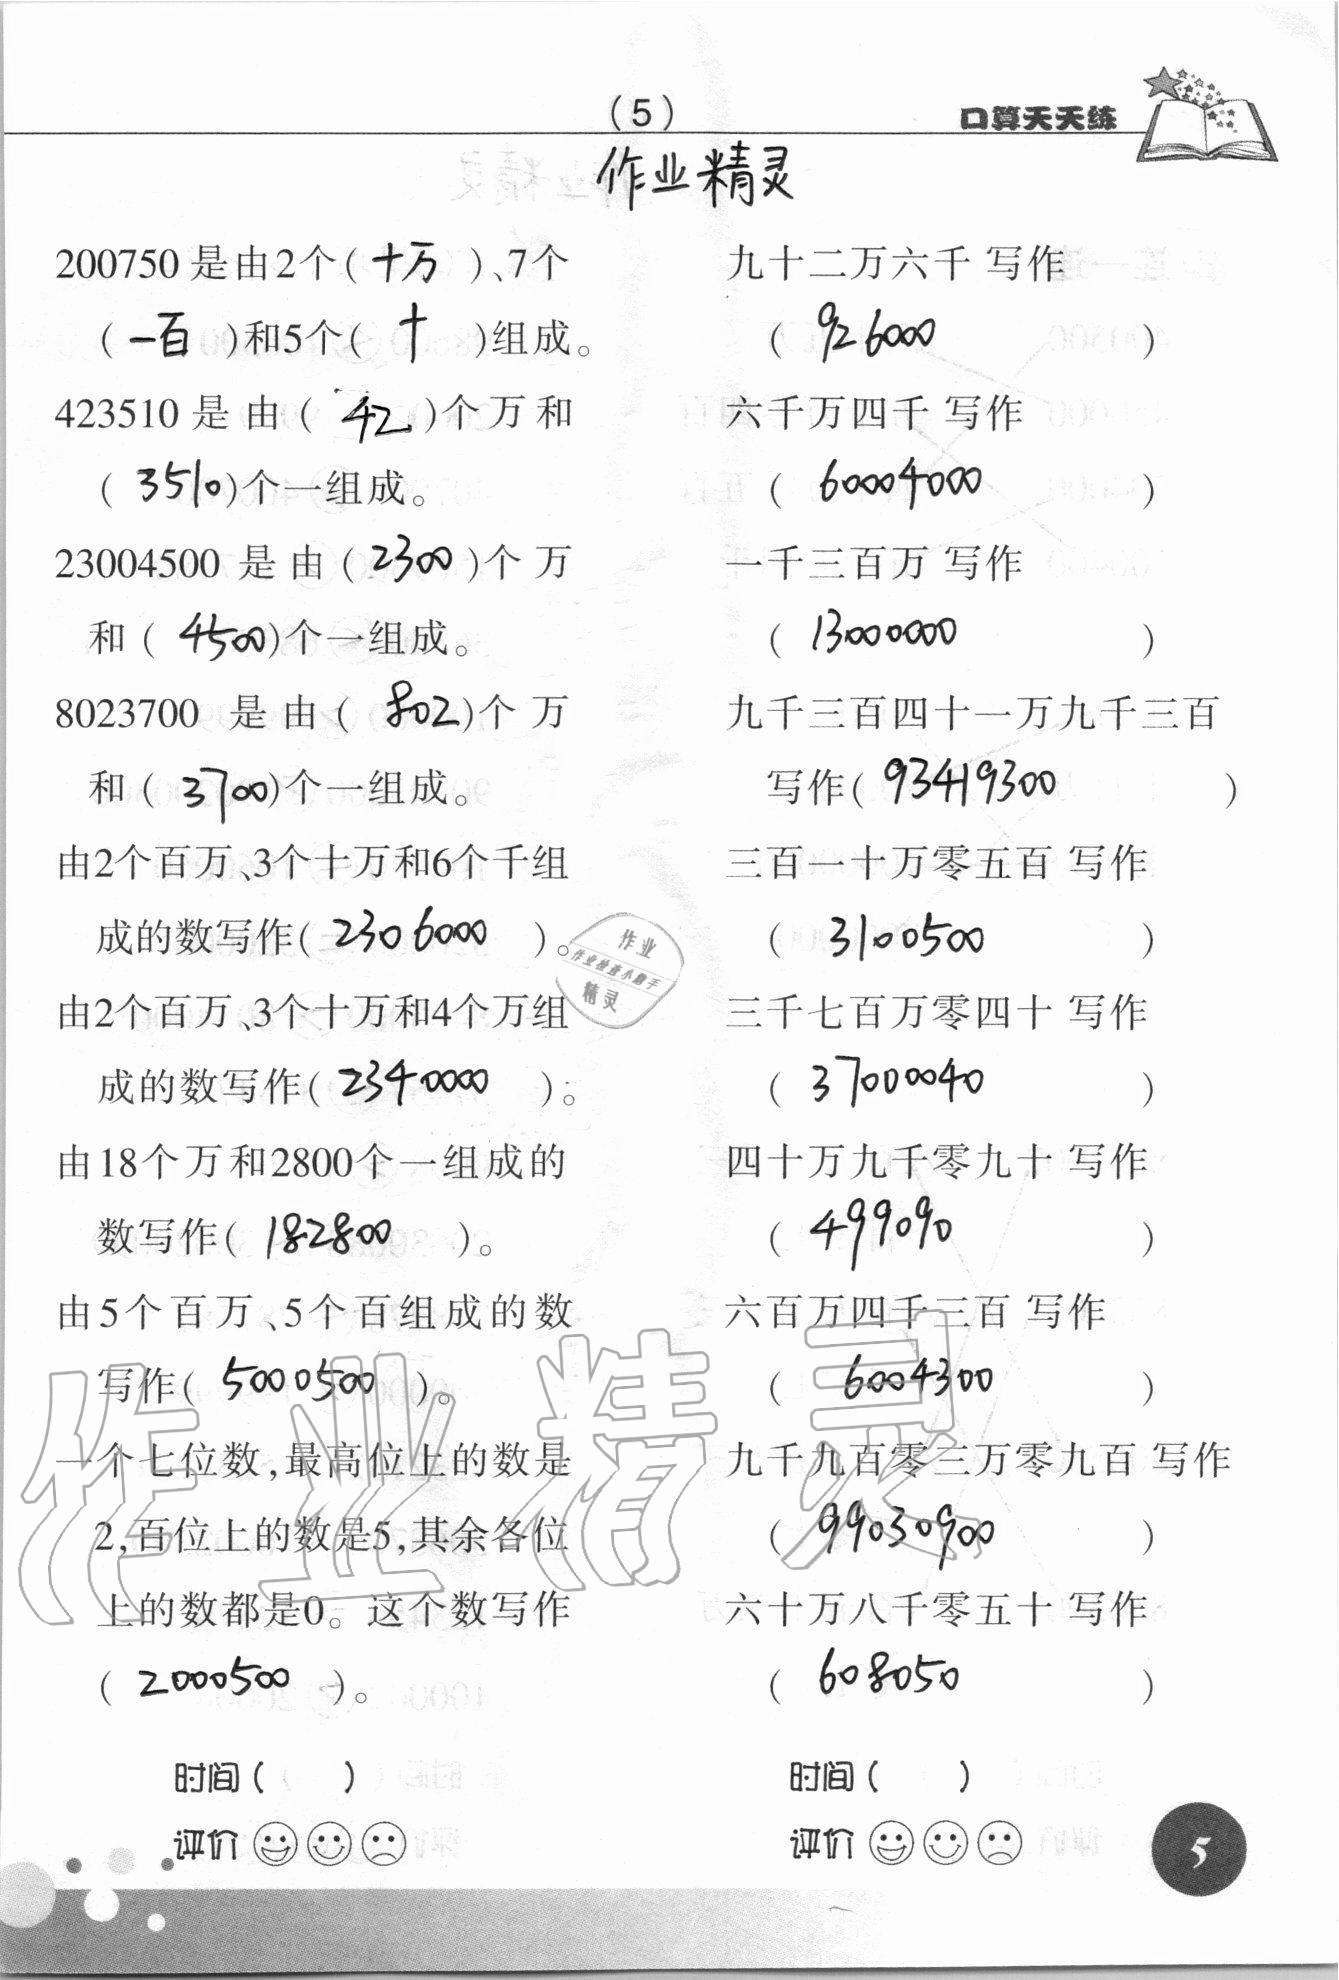 (5)
口算天天练
作业精灵
200750是由2个(十万)、7个
(一百)和5个(十)组成。
423510是由(42)个万和
(3510)个一组成。
23004500是由(2300)个万
和(4500)个一组成。
8023700是由(802)个万
和(3700)个一组成。
由2个百万、3个十万和6个千组
成的数写作(2306000)。
由2个百万、3个十万和4个万组
成的数写作(2340000)。
由18个万和2800个一组成的
数写作(182800)。
由5个百万、5个百组成的数
写作(5000500)。
一个七位数,最高位上的数是
2,百位上的数是5,其余各位
上的数都是0。这个数写作
(2000500)。
时间( )
评价
九十二万六千 写作
(926000)
六千万四千 写作
(60004000)
一千三百万 写作
(13000000)
九千三百四十一万九千三百
写作(93419300)
三百一十万零五百 写作
(3100500)
三千七百万零四十 写作
(37000040)
四十万九千零九十 写作
(499090)
六百万四千三百 写作
(6004300)
九千九百零三万零九百 写作
(99030900)
六十万八千零五十 写作
(608050)
时间( )
评价
作业
作业检查小助手
精灵
作业精灵
5